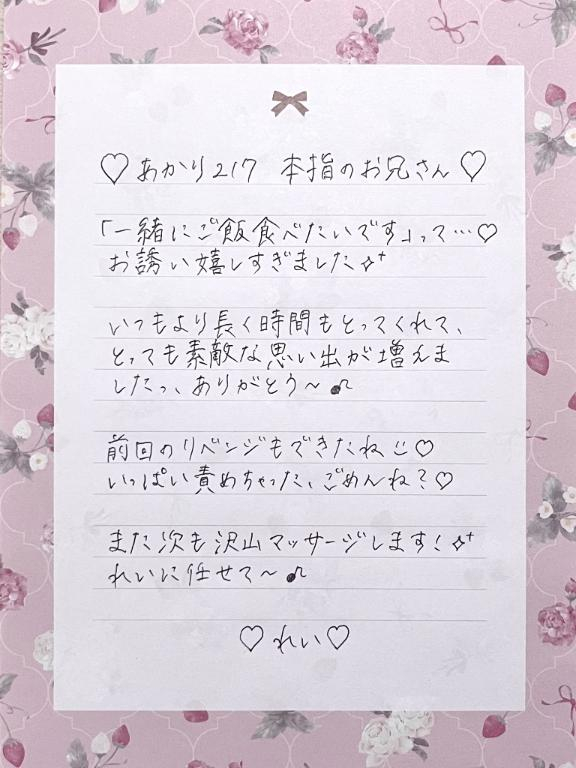 ♡ あかり217 本指のお兄さん ♡
「一緒にご飯食べたいです」って…♡
お誘い嬉しすぎました✧⁺
いつもより長く時間もとってくれて、
とっても素敵な思い出が増えま
したっ、ありがとう〜♪
前回のリベンジもできたね☺♡
いっぱい責めちゃった、ごめんね?♡
また次も沢山マッサージします!✧⁺
れいに任せて〜♪
♡ れい ♡